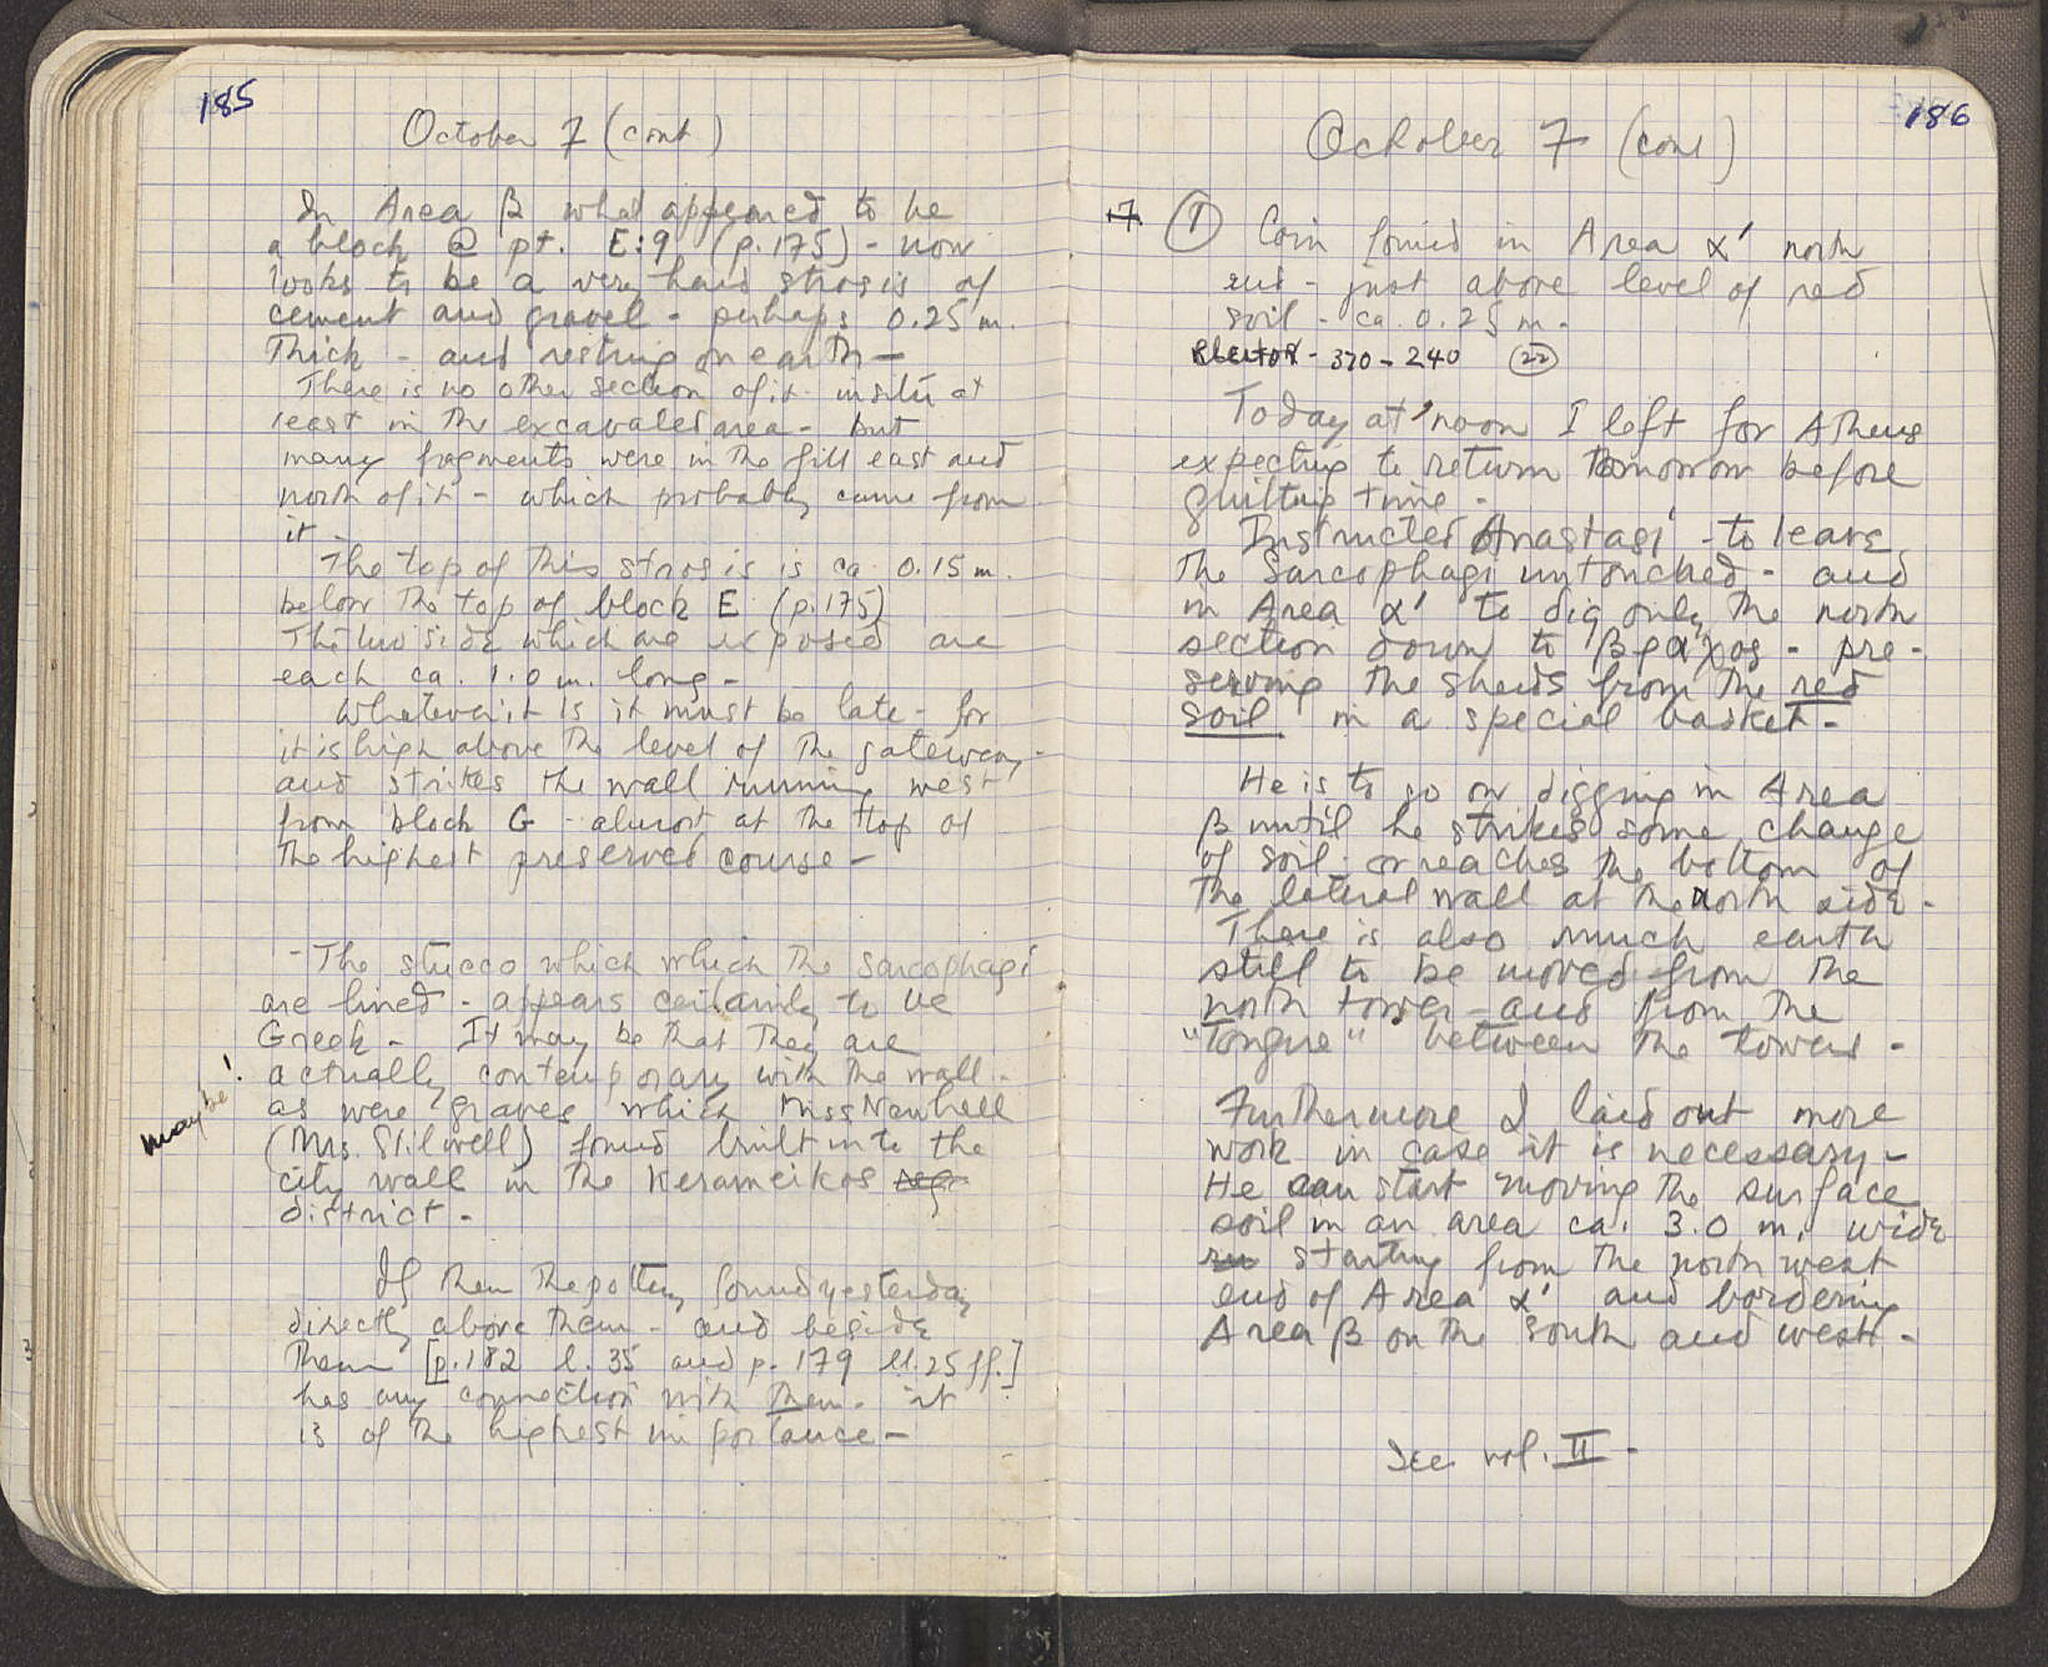 185
October 7 (cont)
In Area β what appeared to be
a block @ pt. E:9 (p.175) - now
looks to be a very hard strosis of
cement and gravel - perhaps 0.25 m.
Thick - and resting on earth -
There is no other section of it in situ at
least in the excavated area - but
many fragments were in the fill east and
north of it - which probably came from
it.
The top of this strosis is ca. 0.15 m.
below the top of block E (p.175)
The two side which are exposed are
each ca. 1.0 m. long -
Whatever it is it must be late - for
it is high above the level of the gateway -
and strikes the wall running west
from block G - almost at the top of
the highest preserved course -
- The stucco which which the sarcophagi
are lined - appears certainly to be
Greek - It may be that they are
actually contemporary with the wall -
as were graves which Miss Newhall
maybe!
(Mrs. Stilwell) found built into the
city wall in the Kerameikos
district -
If then the pottery found yesterday
directly above them - and beside
them [p.182 l. 35 and p. 179 ll. 25 ff.]
has any connection with them - it
is of the highest importance -
186
October 7 (cont)
7. ① Coin found in Area α' north
end - just above level of red
soil - ca. 0.25 m -
- 370 - 240 (22)
Today at noon I left for Athens
expecting to return tomorrow before
quitting time -
Instructed Anastasi - to leave
the Sarcophagi untouched - and
in Area α' to dig only the north
section down to βράχος - pre-
serving the sherds from the red
soil in a special basket -
He is to go on digging in Area
β until he strikes some change
of soil - or reaches the bottom of
the lateral wall at the north side -
There is also much earth
still to be moved from the
north tower and from the
"Tongue" between the towers -
Furthermore I laid out more
work in case it is necessary -
He can start moving the surface
soil in an area ca. 3.0 m. wide
starting from the north west
end of Area α' and bordering
Area β on the south and west -
See vol. II -